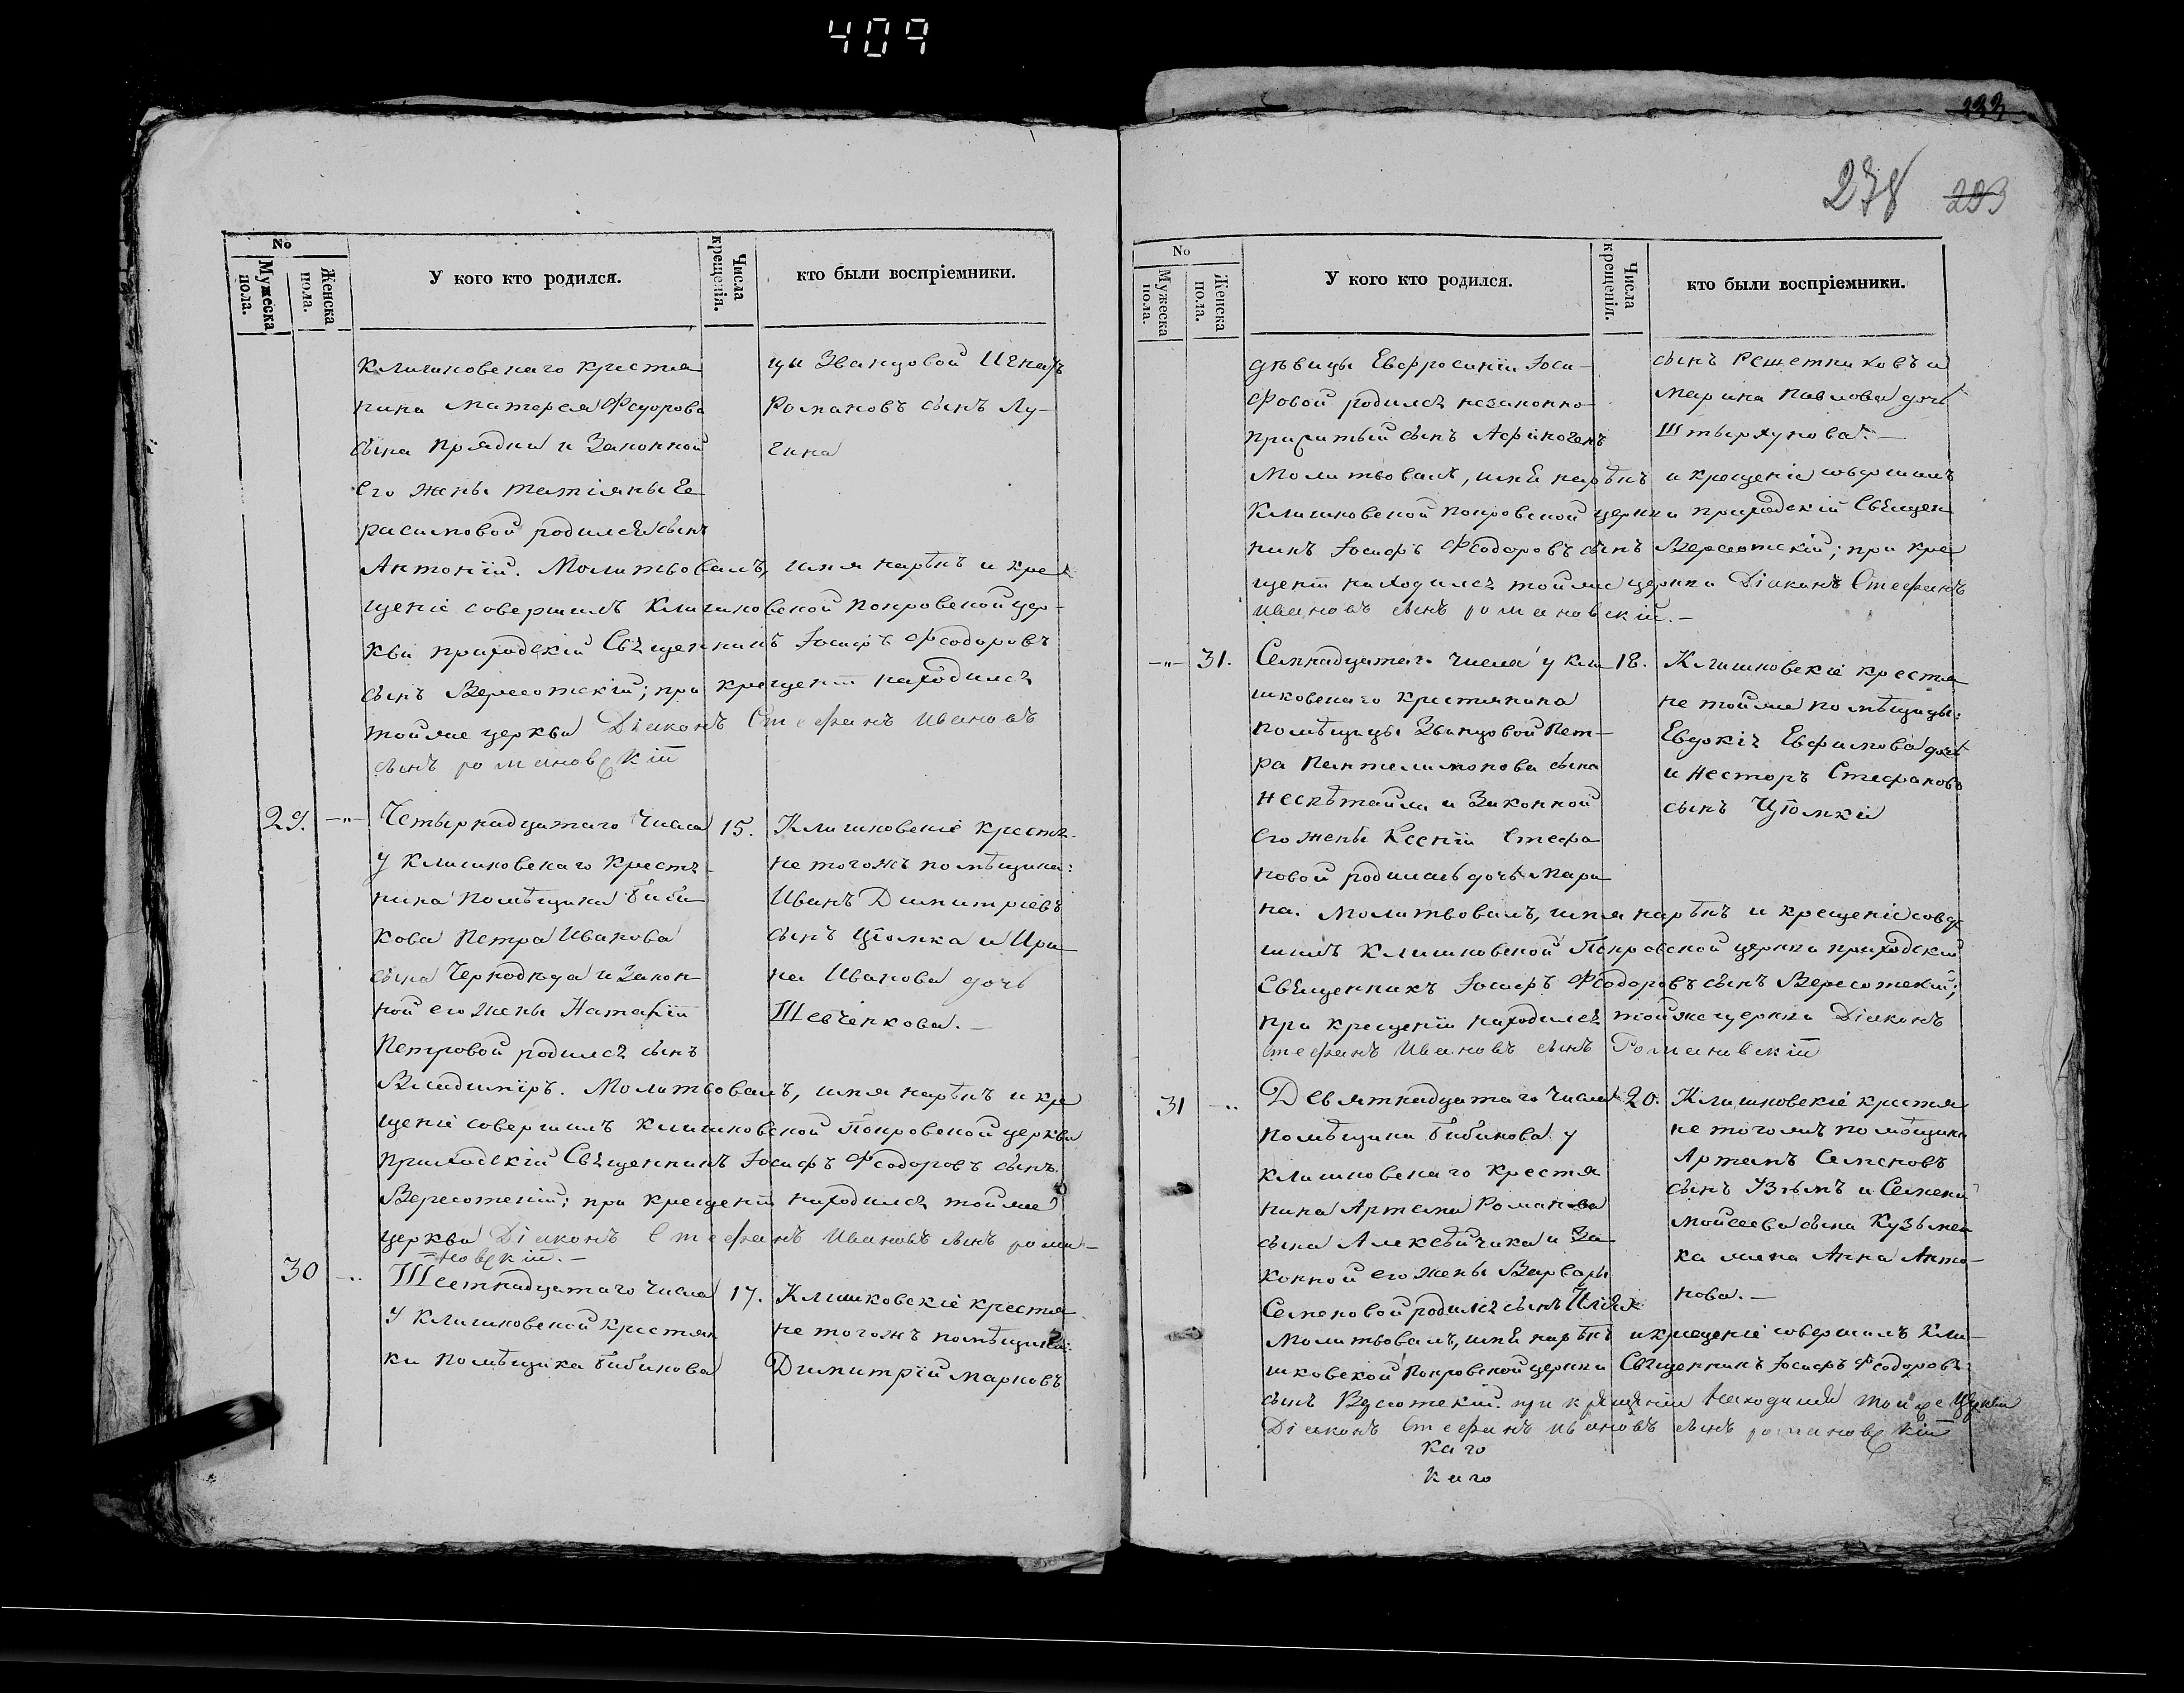 409
233
278 293
No
Мужеска пола.
Женска пола.
У кого кто родился.
Числа крещенія.
кто были воспріемники.
Клишковскаго крестья
нина Матфея Федорова
сына Прядки и Законной
его жены Татіяны Ге
расимовой родился сынъ
Антоній. Молитвовалъ, имя нарѣкъ и кре
щеніе совершилъ Клишковской Покровской цер-
кви приходскій Священникъ Іосифъ Феодоровъ
сынъ Вересотскій; при крещеніи находился
тойже церкви Діаконъ Стефанъ Ивановъ
сынъ романовскій
цы Званцовой Игнатъ
Романовъ сынъ Лу-
гина
29. -"- Четырнадцатаго Числа 15.
у Клишковскаго крестя-
нина помѣщика Биби-
кова Петра Иванова
сына Чернодѣда и Закон-
ной его жены Наталіи
Петровой родился сынъ
Владиміръ. Молитвовалъ, имя нарѣкъ и кре
щеніе совершилъ Клишковской Покровской церкви
Приходскій Священникъ Іосифъ Феодоровъ сынъ
Вересотскій; при крещеніи находился тойже
церкви Діаконъ Стефанъ Ивановъ сынъ рома-
новскій.-
Клишковскіе крестя-
не тогожъ помѣщика:
Иванъ Димитріевъ
сынъ Ціомка и Ири
на Иванова дочь
Шевченкова.-
30 -" Шестнадцатаго числа 17.
у Клишковской крестян
ки помѣщика Бибикова
Клишковскіе крестья
не тогожъ помѣщика:
Димитрій Марковъ
No
Мужеска пола.
Женска пола.
У кого кто родился.
Числа крещенія.
кто были воспріемники.
дѣвицы Евфросиніи Іоси-
фовой родился незаконно-
прижитый сынъ Афиногенъ
Молитвовалъ, имя нарѣкъ и крещеніе совершилъ
Клишковской Покровской церкви приходскій Священ
никъ Іосифъ Феодоровъ сынъ Вересотскій; при кре
щеніи находился тойже церкви Діаконъ Стефанъ
Ивановъ сынъ романовскій.-
сынъ Решетниковъ и
Марина Павлова дочь
Штырхунова.-
-"- 31. Семнадцатаго числа у Кли 18.
шковскаго крестьянина
помѣщицы Званцовой Пет-
ра Пантелимонова сына
Неспѣтайла и Законной
его жены Ксеніи Стефа
новой родилась дочь Мари
на. Молитвовалъ, имя нарѣкъ и крещеніе совер
шилъ Клишковской Покровской церкви приходскій
Священникъ Іосифъ Феодоровъ сынъ Вересотскій;
при крещеніи находился тойже церкви Діаконъ
Стефанъ Ивановъ сынъ Романовскій
Клишковскіе крестья
не тойже помѣщицы:
Евдокія Евфимова дочь
и Несторъ Стефановъ
сынъ Ціомкій
31 -" Девятнадцатаго числа 20.
помѣщика Бибикова у
Клишковскаго крестья
нина Артема Романова
сына Алексѣйчика и За
конной его жены Варвары
Семеновой родился сынъ Илія
Молитвовалъ, имя нарѣкъ и крещеніе совершилъ Кли-
шковской Покровской церкви Священникъ Іосифъ Феодоровъ
сынъ Вересотскій. при крещеніи находился тойже Церкви
Діаконъ Стефанъ Ивановъ сынъ романовскій
Клишковскіе крестья
не тогожъ помѣщика
Артемъ Семеновъ
сынъ и Семена
Мойсеева сына Кузьмен
ка жена Анна Анто-
нова.-
каго
каго